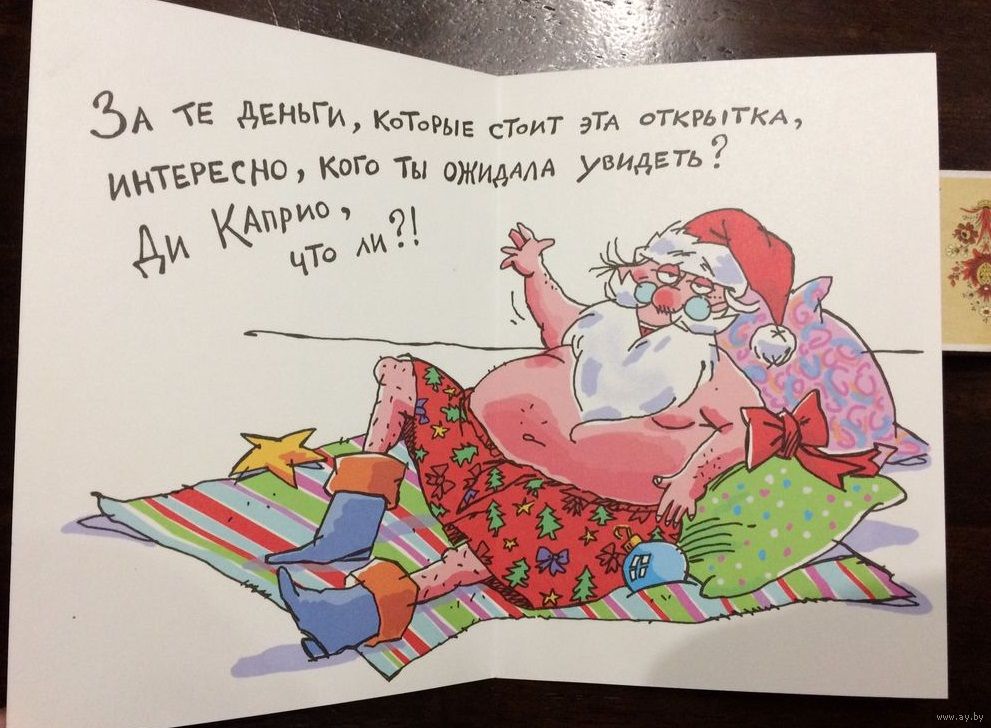 За те деньги, которые стоит эта открытка,
интересно, кого ты ожидала увидеть?
Ди Каприо,
что ли?!
www.ay.by